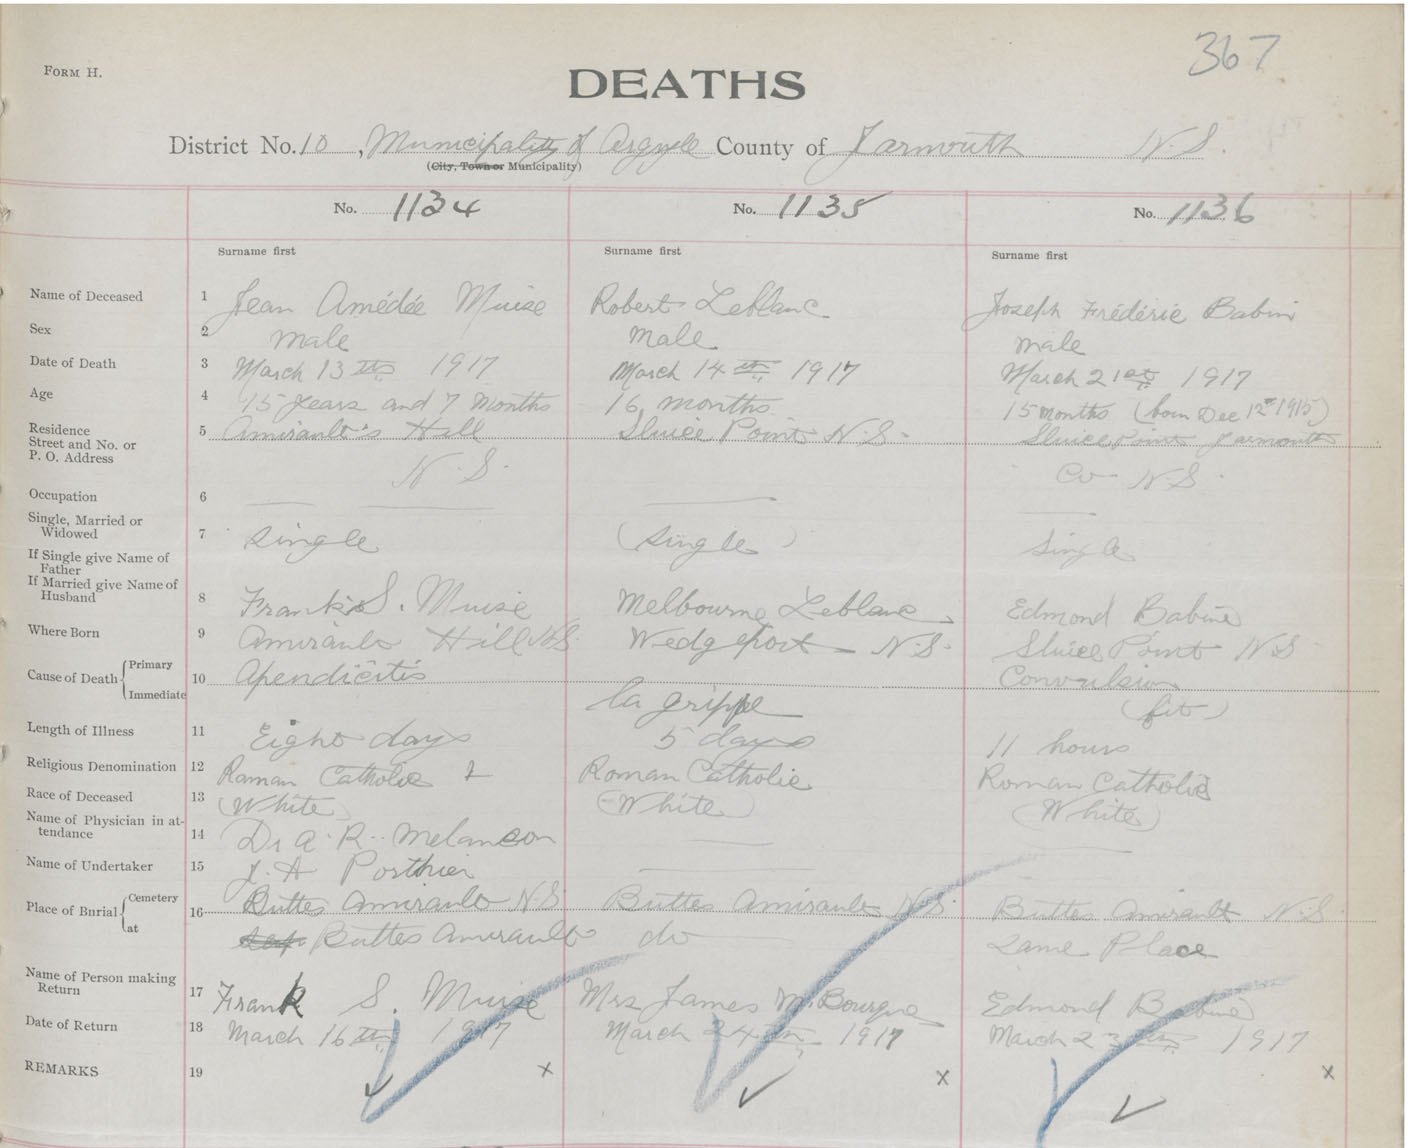 367
FORM H.
DEATHS
District No. 10, Municipality of Argyle County of Yarmouth N.S.
(City, Town or Municipality)
No. 1134 No. 1135 No. 1136
Surname first Surname first Surname first
Name of Deceased 1 Jean Amédée Muise Robert Leblanc Joseph Frédéric Babin
Sex 2 male male male
Date of Death 3 March 13th 1917 March 14th 1917 March 21st 1917
Age 4 15 years and 7 Months 16 months 15 months (born Dec 12th 1915)
Residence
Street and No. or 5 Amirault's Hill Sluice Point N.S. Sluice Point Yarmouth
P. O. Address N.S. Co N.S.
Occupation 6
Single, Married or
Widowed 7 single (single) single
If Single give Name of
Father
If Married give Name of
Husband 8 Frank S. Muise Melbourne Leblanc Edmond Babine
Where Born 9 Amirault Hill N.S. Wedgeport N.S. Sluice Point N.S.
Cause of Death { Primary 10 Apendicitis Convulsion
Immediate la grippe (fit)
Length of Illness 11 Eight days 5 days 11 hours
Religious Denomination 12 Roman Catholic Roman Catholic Roman Catholic
Race of Deceased 13 (White) (White) (White)
Name of Physician in at-
tendance 14 Dr A. R. Melanson
Name of Undertaker 15 J. A Porthier
Place of Burial { Cemetery 16 Buttes Amirault N.S. Buttes Amirault N.S. Buttes Amirault N.S.
at Buttes Amirault do Same Place
Name of Person making
Return 17 Frank S. Muise Mrs James M. Bourque Edmond Babine
Date of Return 18 March 16th 1917 March 24th 1917 March 23 1917
REMARKS 19 x x x